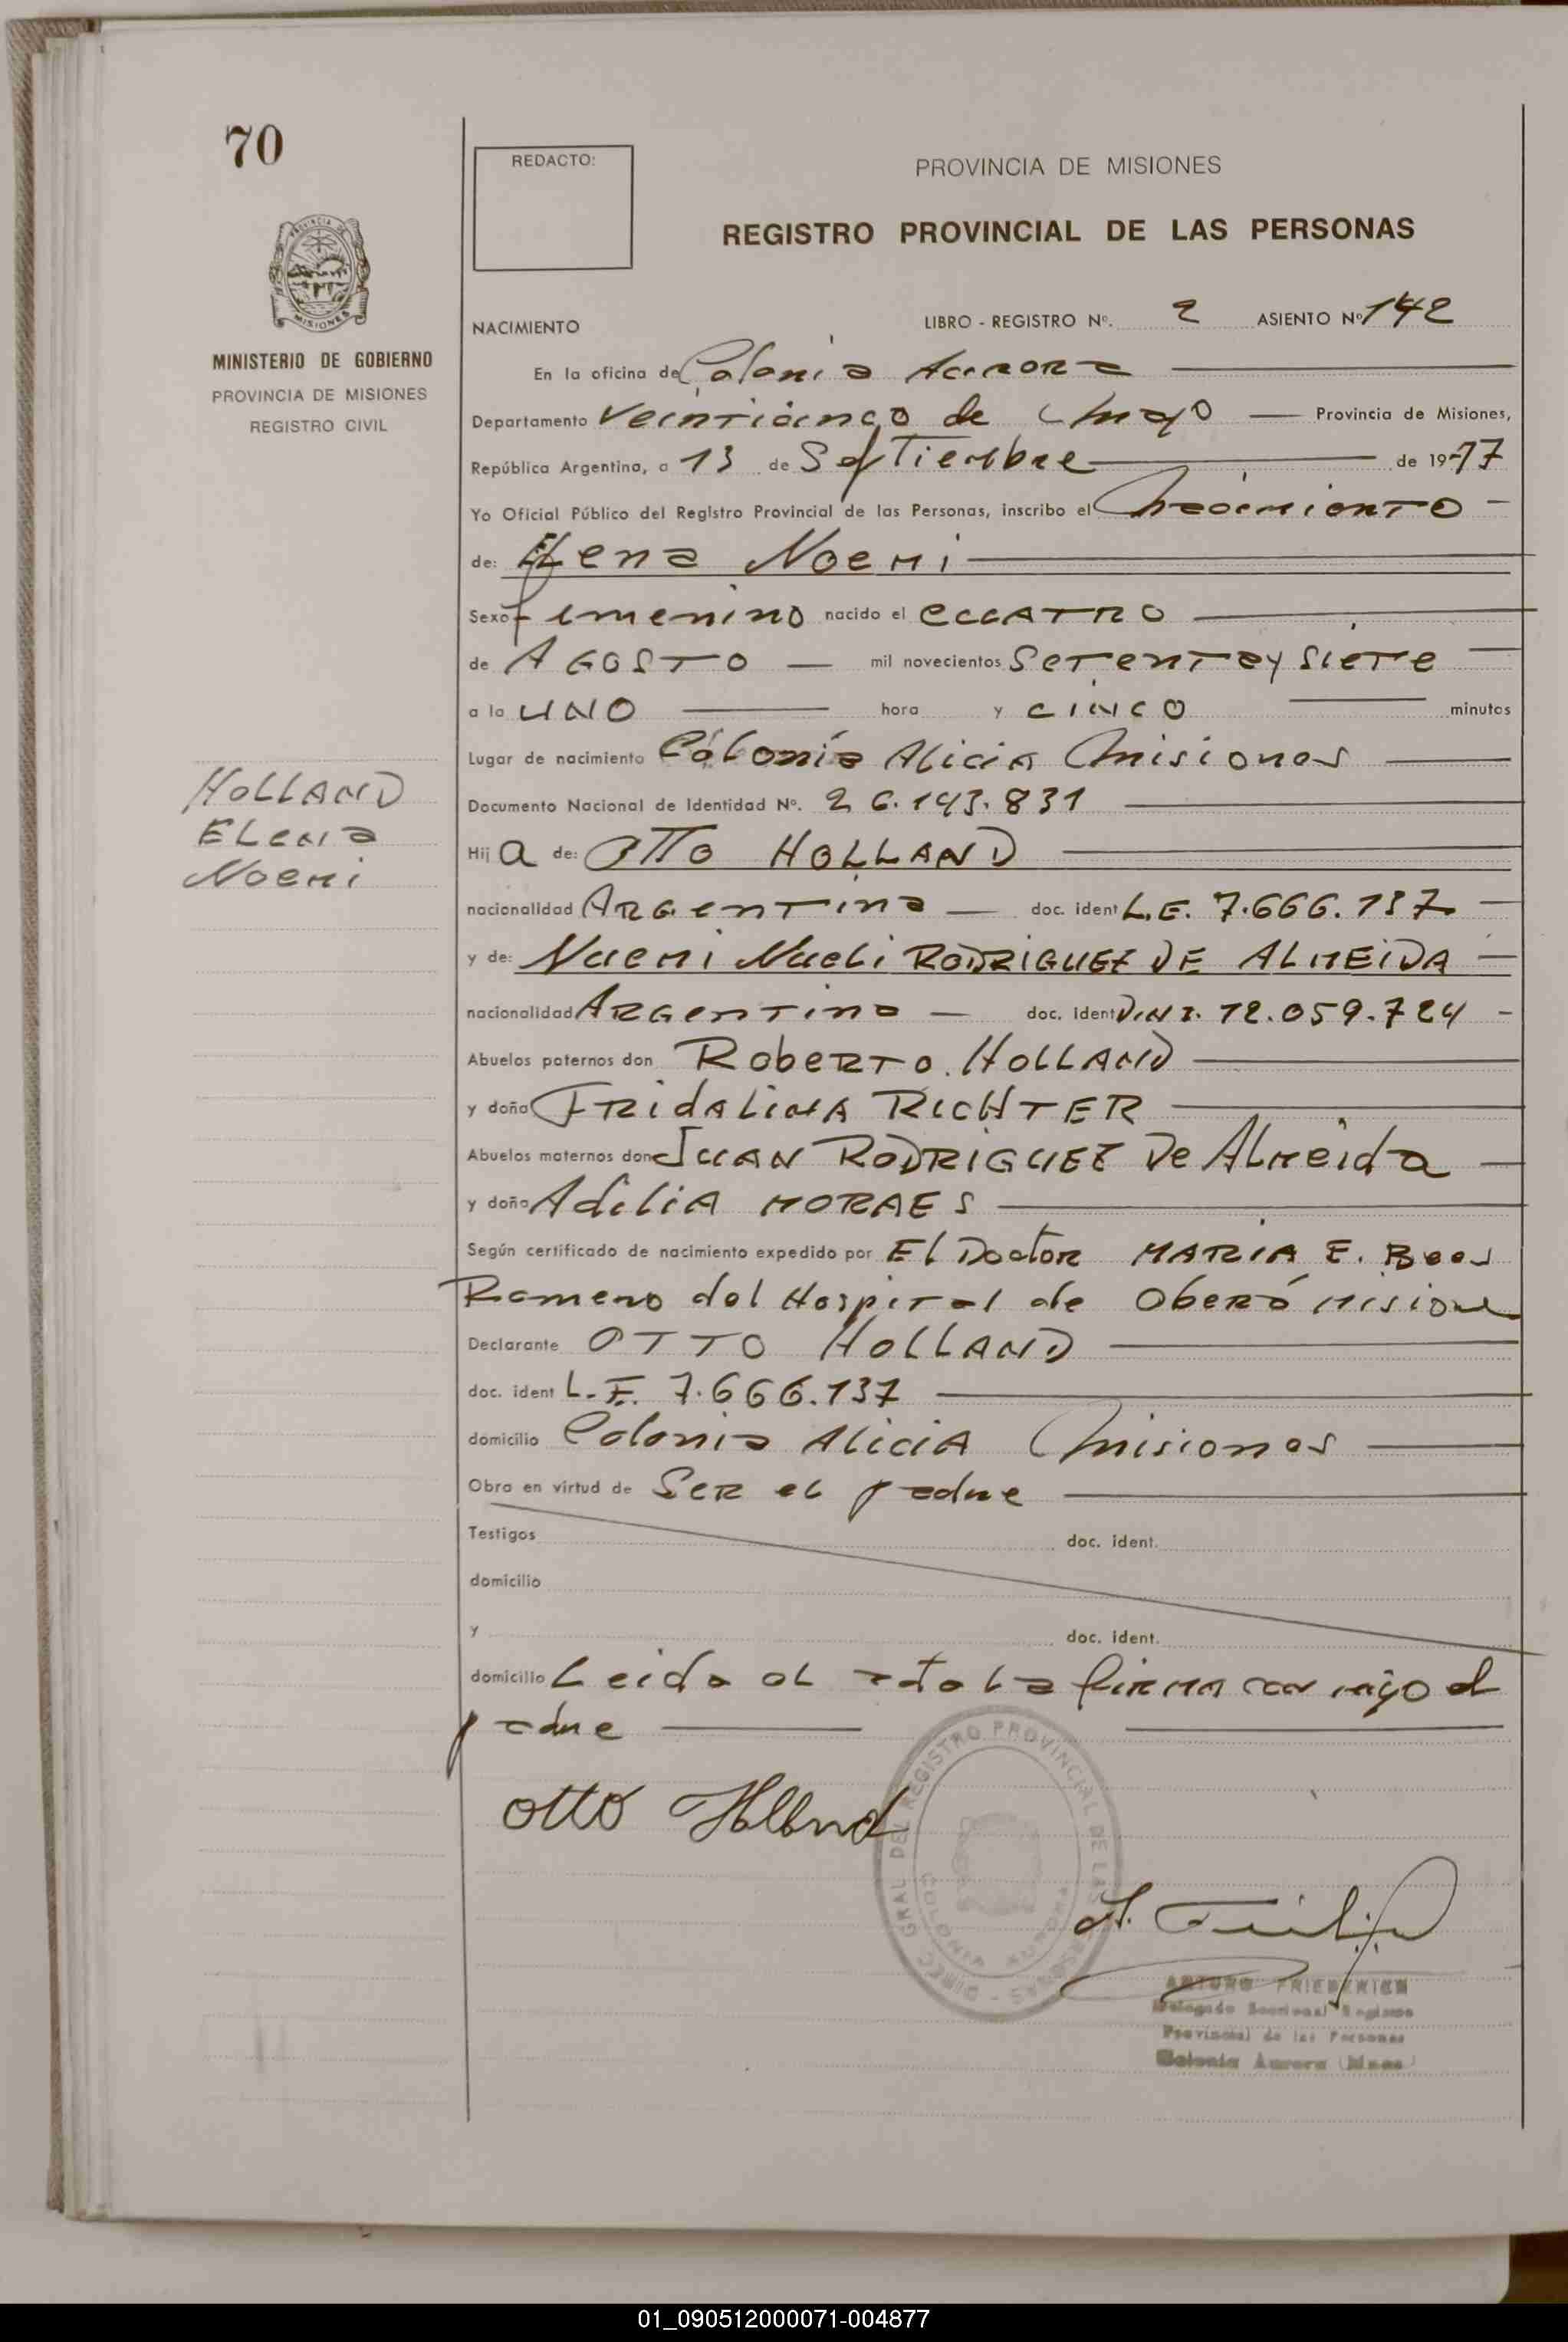 70
REDACTO:
PROVINCIA DE MISIONES
REGISTRO PROVINCIAL DE LAS PERSONAS
MISIONES
MINISTERIO DE GOBIERNO
PROVINCIA DE MISIONES
REGISTRO CIVIL
NACIMIENTO LIBRO - REGISTRO Nº. 2 ASIENTO Nº 142
En la oficina de Colonia Aurora
Departamento Veinticinco de Mayo Provincia de Misiones,
República Argentina, a 13 de Septiembre de 1977
Yo Oficial Público del Registro Provincial de las Personas, inscribo el Nacimiento
de: Elena Noemi
Sexo femenino nacido el CUATRO
de AGOSTO mil novecientos Setenta y Siete
a la UNO hora y CINCO minutos
Lugar de nacimiento Colonia Alicia Misiones
HOLLAND
ELena
Noemi
Documento Nacional de Identidad Nº. 26.193.831
Hij a de: OTTO HOLLAND
nacionalidad ARGentina doc. ident L.E. 7.666.137
y de: Naemi Naeli RODRIGUEZ DE ALMEIDA
nacionalidad ARGentina doc. ident D.N.I. 12.059.724
Abuelos paternos don RobeRTo HOLLAND
y doña FRidaLiNA RICHTER
Abuelos maternos don JUAN RODRIGUEZ De ALmeida
y doña AdiLiA MORAES
Según certificado de nacimiento expedido por El DoctoR MARIA E.
Romero del Hospital de Oberá Misiones
Declarante OTTO HOLLAND
doc. ident L.E. 7.666.137
domicilio Colonia Alicia Misiones
Obra en virtud de SeR el padre
Testigos doc. ident.
domicilio
y doc. ident.
domicilio Leida el acta la firma conmigo el
padre
Otto Holland
DIREC. GRAL. DEL REGISTRO PROVINCIAL DE LAS PERSONAS
COLONIA AURORA
ARTURO FRIEDERICH
Delegado Seccional Registro
Provincial de las Personas
Colonia Aurora (Mnes.)
01_090512000071-004877